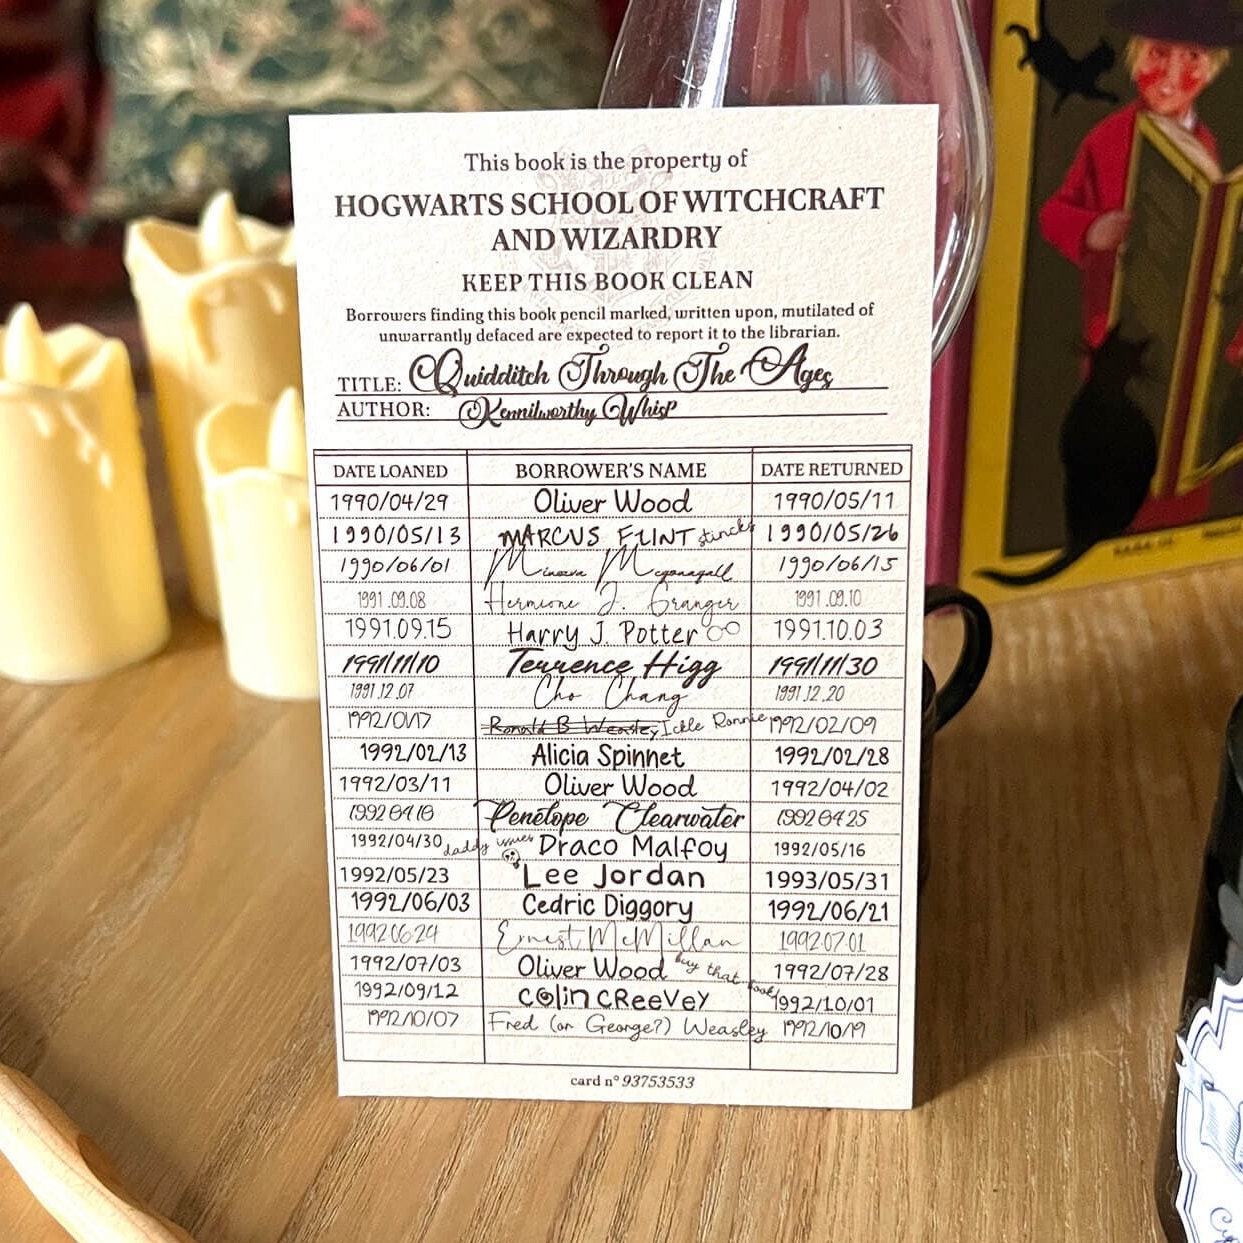 This book is the property of
HOGWARTS SCHOOL OF WITCHCRAFT
AND WIZARDRY
KEEP THIS BOOK CLEAN
Borrowers finding this book pencil marked, written upon, mutilated of
unwarrantly defaced are expected to report it to the librarian.
TITLE: Quidditch Through The Ages
AUTHOR: Kennilworthy Whisp
DATE LOANED BORROWER'S NAME DATE RETURNED
1990/04/29 Oliver Wood 1990/05/11
1990/05/13 MARCUS FLINT stincks 1990/05/26
1990/06/01 Minerva Mcgonagall 1990/06/15
1991.09.08 Hermione J. Granger 1991.09.10
1991.09.15 Harry J. Potter 1991.10.03
1991/11/10 Terrence Higg 1991/11/30
1991.12.07 Cho Chang 1991.12.20
1992/01/17 Ronald B Weasley Ickle Ronnie 1992/02/09
1992/02/13 Alicia Spinnet 1992/02/28
1992/03/11 Oliver Wood 1992/04/02
1992 04 10 Penelope Clearwater 1992 04 25
1992/04/30 daddy issues Draco Malfoy 1992/05/16
1992/05/23 Lee Jordan 1993/05/31
1992/06/03 Cedric Diggory 1992/06/21
1992 06 24 Ernest McMillan 1992 07 01
1992/07/03 Oliver Wood buy that book 1992/07/28
1992/09/12 Colin CReeVeY 1992/10/01
1992/10/07 Fred (or George?) Weasley 1992/10/19
card n° 93753533